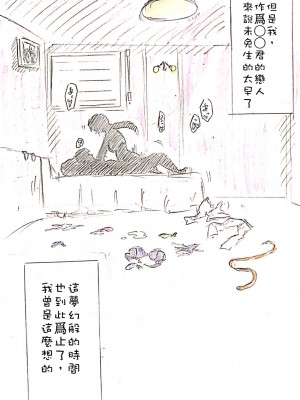 但是我，
作爲○○君的戀人
來說未免生的太早了
這夢幻般的時間
也到此爲止了，
我曾是這麼想的